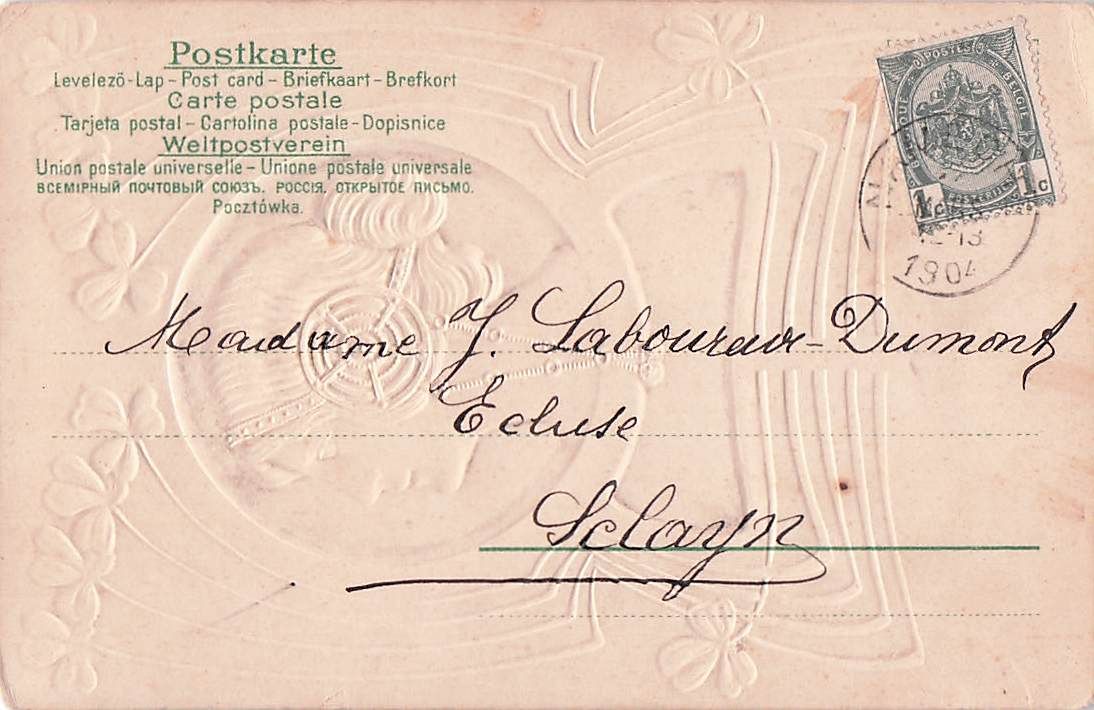 Postkarte
Levelező-Lap - Post card - Briefkaart - Brefkort
Carte postale
Tarjeta postal - Cartolina postale - Dopisnice
Weltpostverein
Union postale universelle - Unione postale universale
ВСЕМІРНЫЙ ПОЧТОВЫЙ СОЮЗЪ. РОССІЯ. ОТКРЫТОЕ ПИСЬМО.
Pocztówka.
POSTES BELGIË
1c 1c
1904
Madame J. Laboureur-Dumont
Ecluse
Sclayn